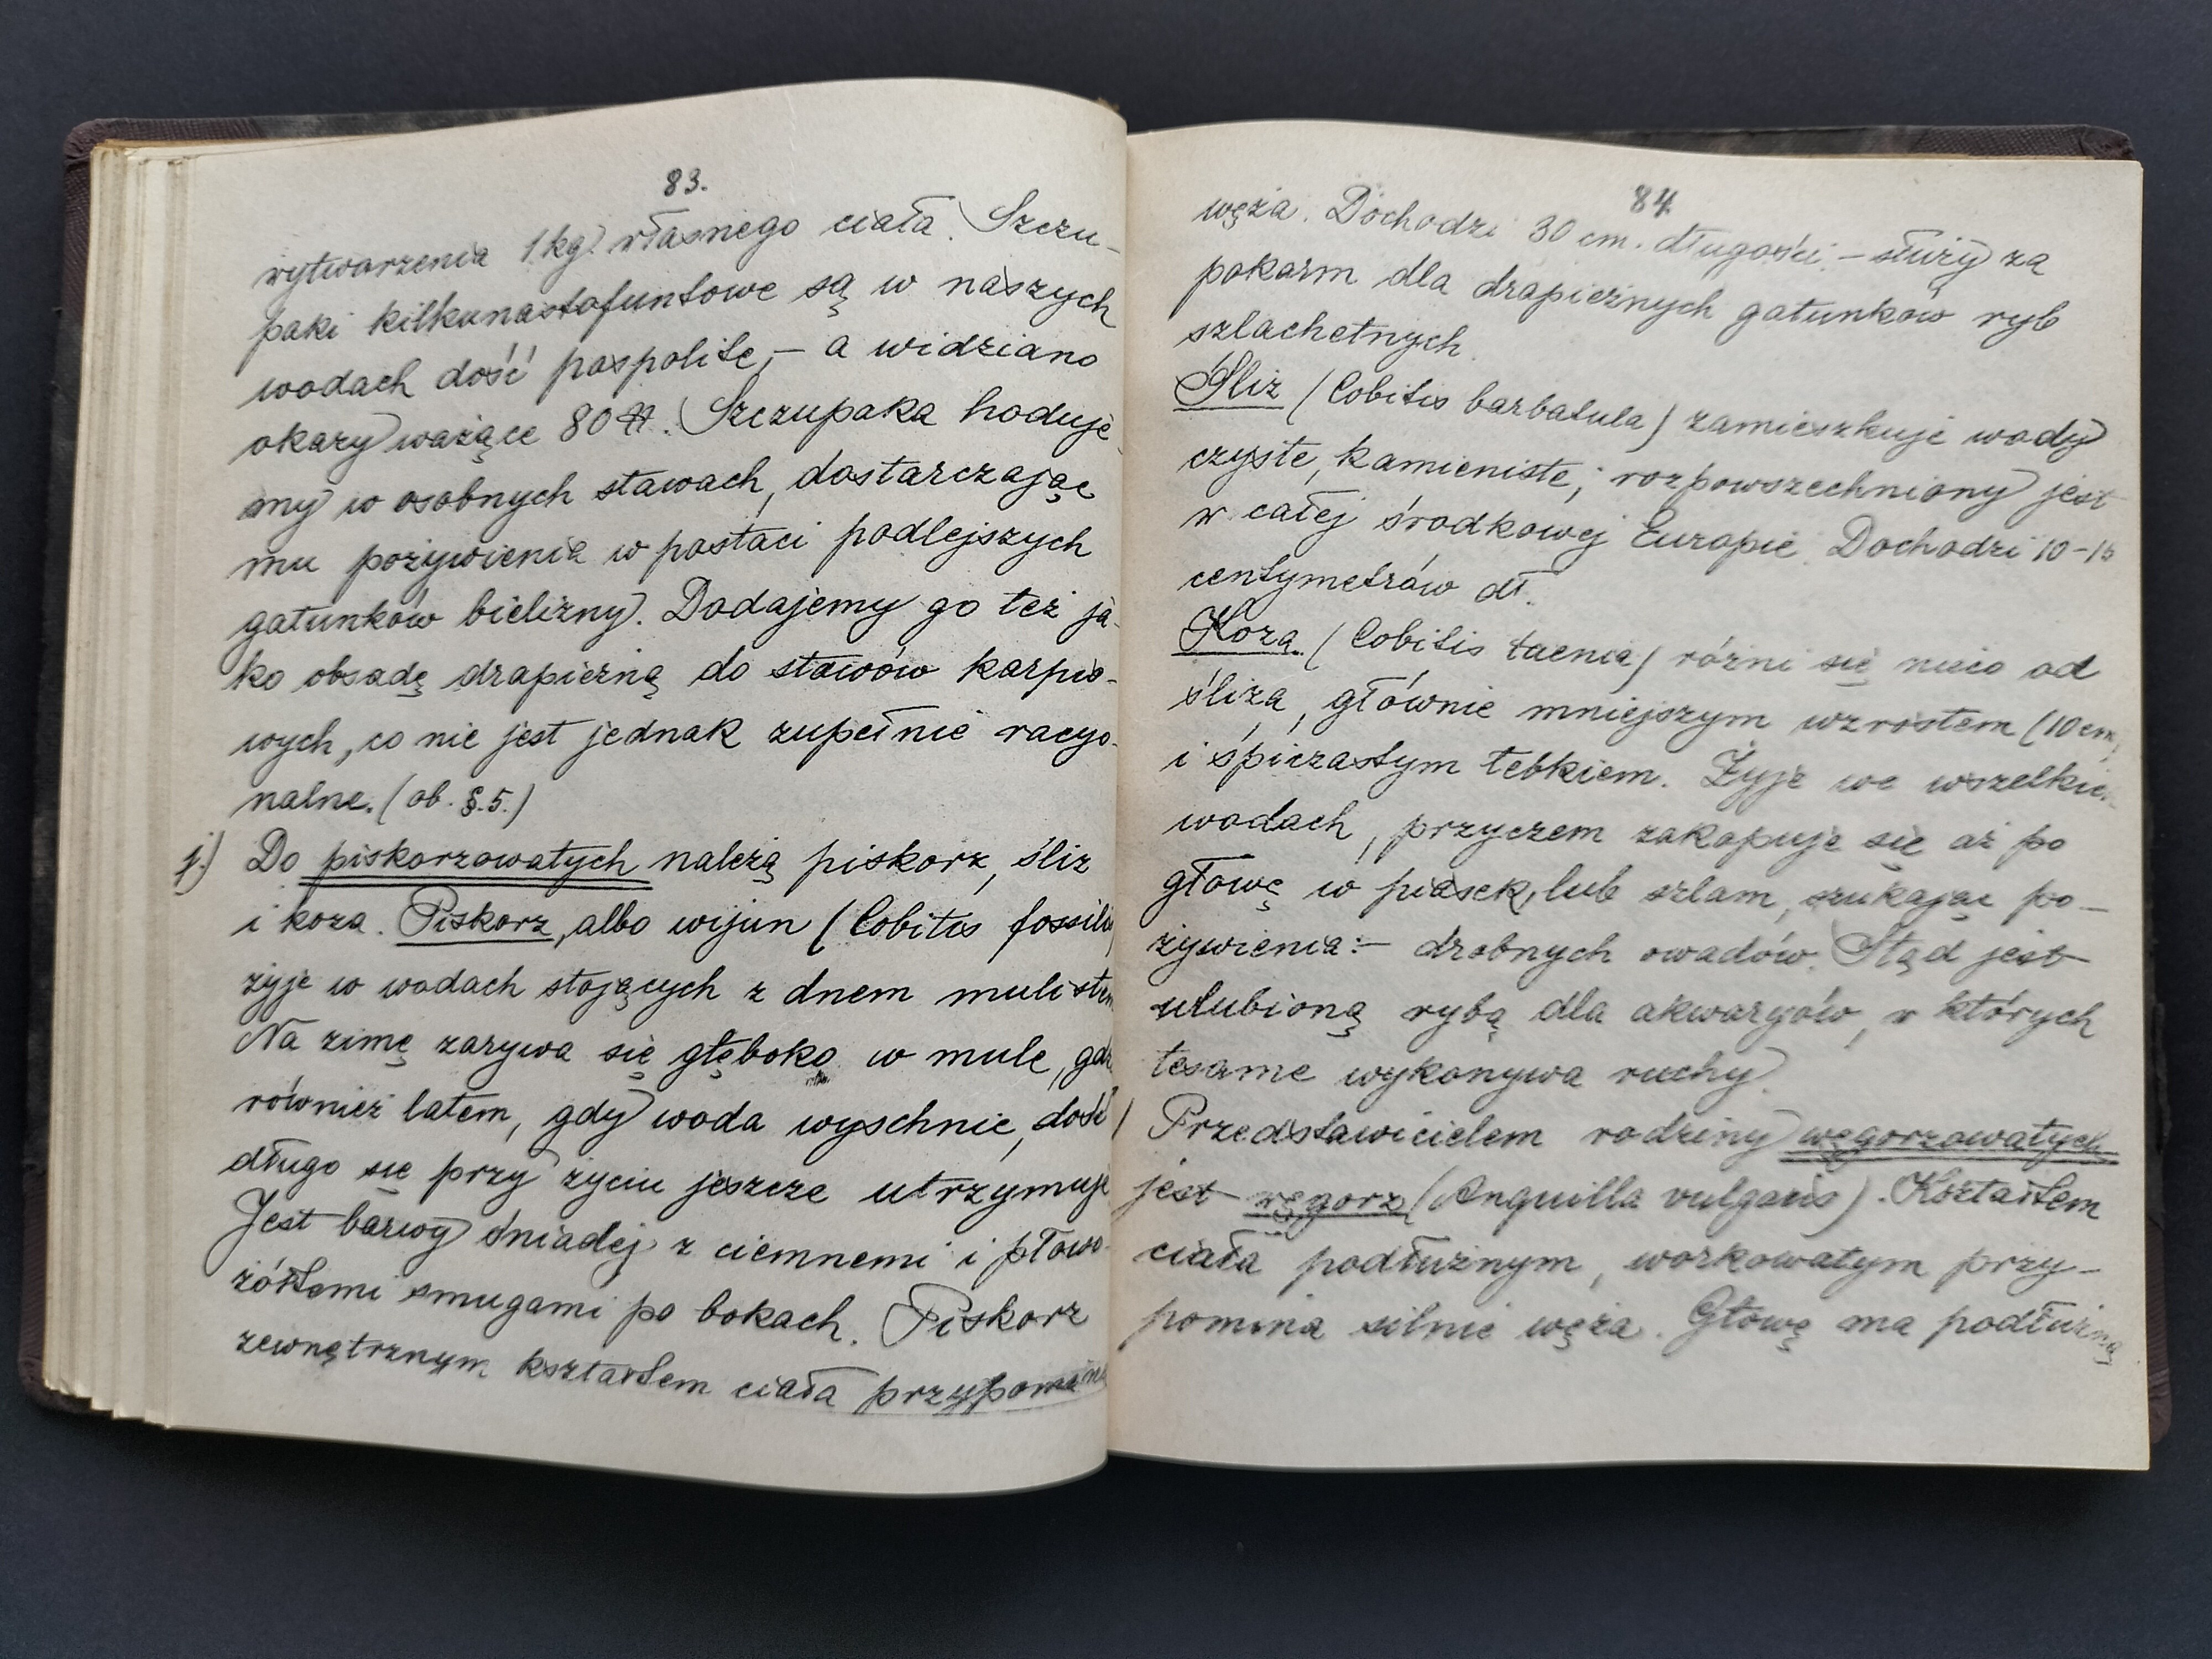 83.
wytworzenia 1 kg. własnego ciała. Szczu-
paki kilkunastofuntowe są w naszych
wodach dość pospolite, – a widziano
okazy ważące 80 ℔. Szczupaka hoduje
my w osobnych stawach, dostarczając
mu pożywienia w postaci podlejszych
gatunków bieliżny. Dodajemy go też ja-
ko obsadę drapieżną do stawów karpio-
wych, co nie jest jednak zupełnie racyo-
nalne. (ob. §. 5.)
j.) Do piskorzowatych należą piskorz, śliz
i koza. Piskorz, albo wijun (Cobitis fossilis
żyje w wodach stojących z dnem mulistem
Na zimę zarywa się głęboko w mule, gdz
również latem, gdy woda wyschnie, dość
długo się przy życiu jeszcze utrzymuje
Jest barwy śniadej z ciemnemi i płowo-
żółtemi smugami po bokach. Piskorz
zewnętrznym kształtem ciała przypomina
84.
węża. Dochodzi 30 cm. długości – służy za
pokarm dla drapieżnych gatunków ryb
szlachetnych.
Śliz (Cobitis barbatula) zamieszkuje wody
czyste, kamieniste; rozpowszechniony jest
w całej środkowej Europie. Dochodzi 10-15
centymetrów dł.
Koza. (Cobitis taenia) różni się nieco od
śliza, głównie mniejszym wzrostem (10 cm,
i śpiczastym łebkiem. Żyje we wszelkic
wodach, przyczem zakopuje się aż po
głowę w piasek, lub szlam, szukając po-
żywienia:– drobnych owadów. Stąd jest
ulubioną rybą dla akwaryów, w których
tesame wykonywa ruchy.
Przedstawicielem rodziny węgorzowatych
jest węgorz (Anguilla vulgaris). Kształtem
ciała podłużnym, workowatym przy-
pomina silnie węża. Głowę ma podłużną